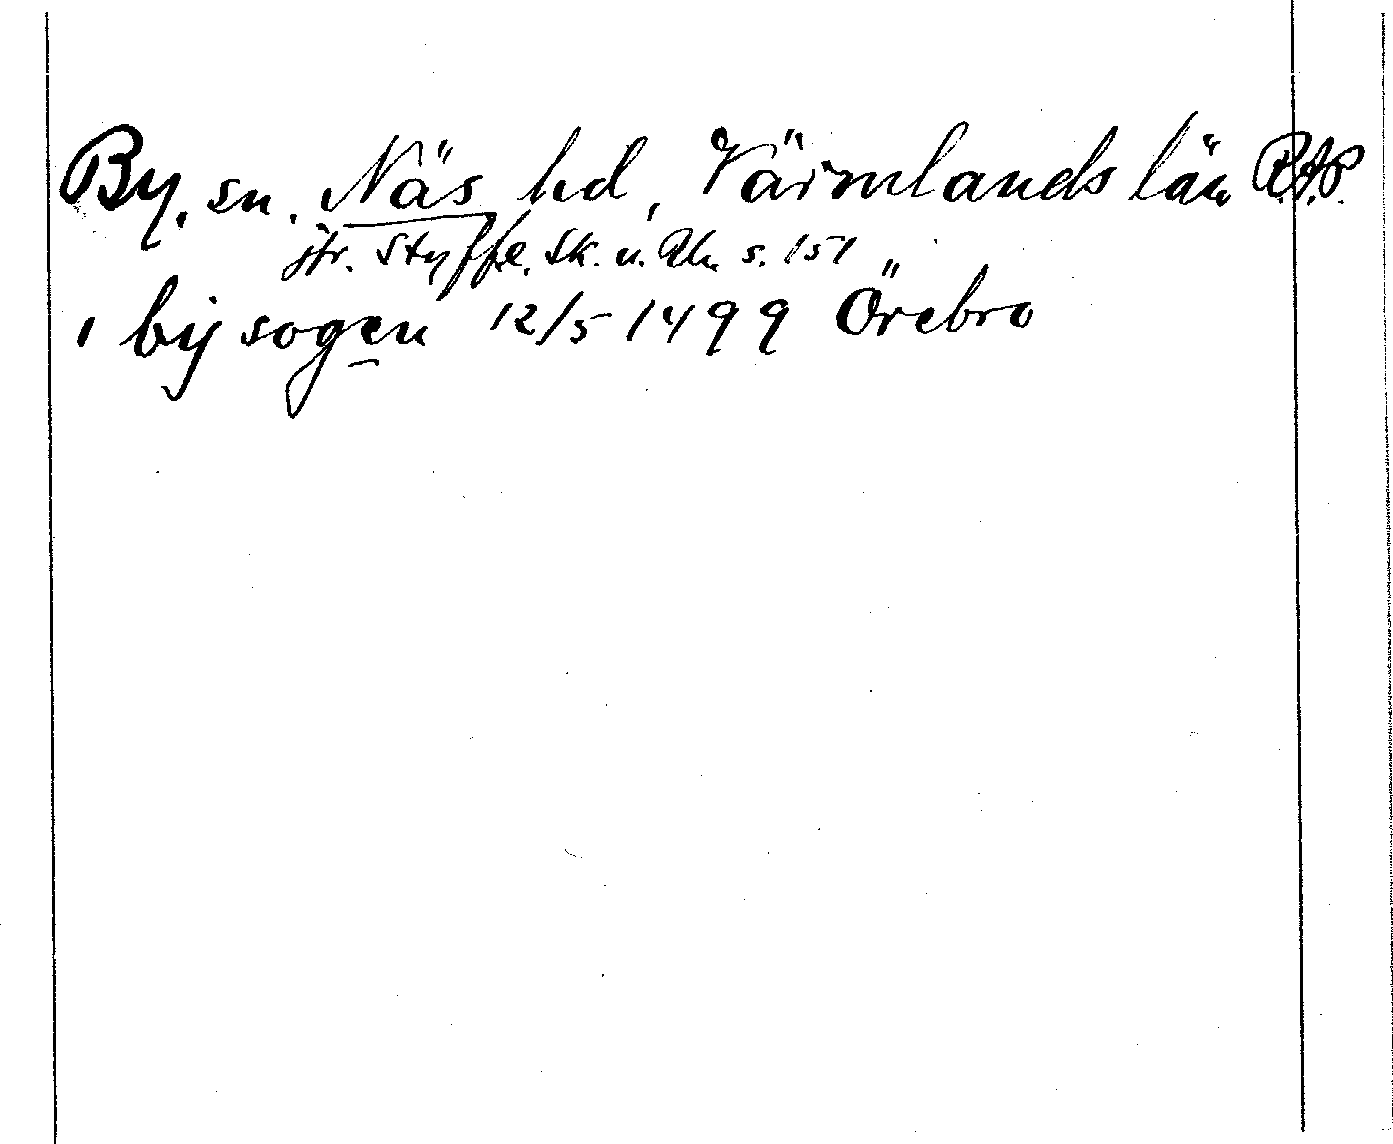 By, sn. Näs hd, Värmlands län R.A.P.
jfr. Styffe, Sk. u. Ut. s. 151
i bij sogen 12/5 1499 Örebro